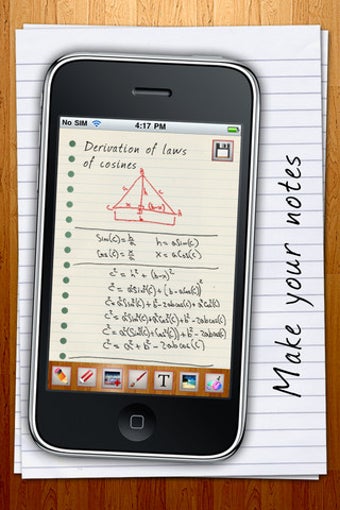 No SIM 4:17 PM
Derivation of laws
of cosines
Sin(C) = h/a h = aSin(C)
Cos(C) = x/a x = aCos(C)
c² = h² + (b-x)²
c² = a²Sin²(C) + (b - aCos(C))²
c² = a²Sin²(C) + b² - 2abcos(C) + a²Cos²(C)
c² = a²Sin²(C) + a²Cos²(C) + b² - 2abcos(C)
c² = a²(Sin²(C) + Cos²(C)) + b² - 2abcos(C)
c² = a² + b² - 2abcos(C)
T
Make your notes